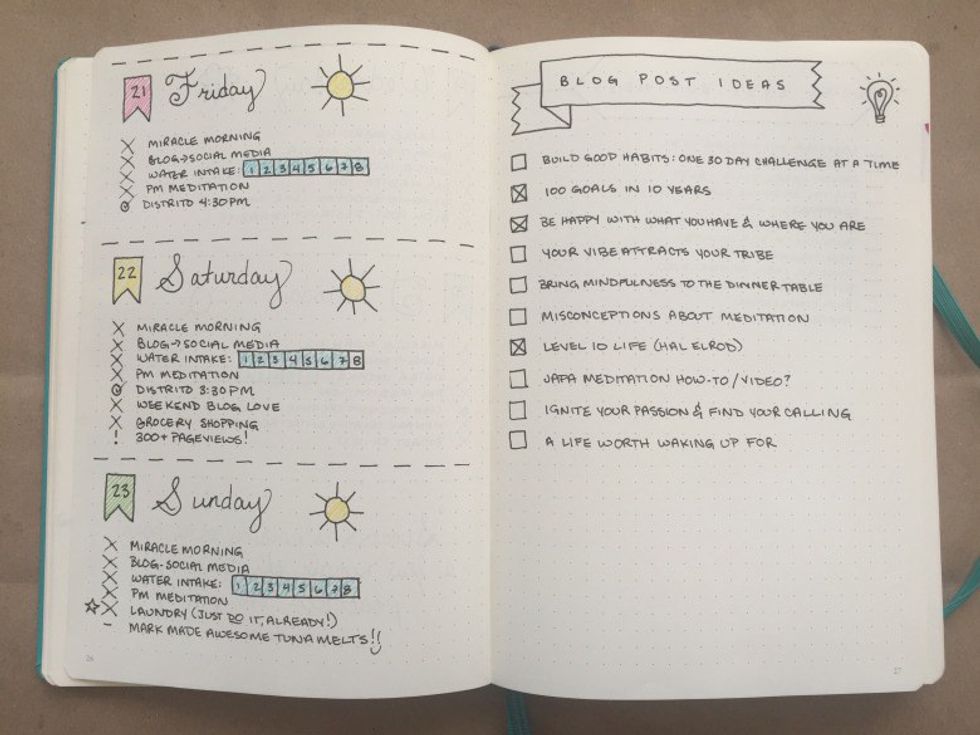 21 Friday
X MIRACLE MORNING
X BLOG→SOCIAL MEDIA
X WATER INTAKE: 1 2 3 4 5 6 7 8
X PM MEDITATION
DISTRITO 4:30PM
22 Saturday
X MIRACLE MORNING
X BLOG→SOCIAL MEDIA
X WATER INTAKE: 1 2 3 4 5 6 7 8
X PM MEDITATION
DISTRITO 3:30PM
X WEEKEND BLOG LOVE
X GROCERY SHOPPING
! 300+ PAGEVIEWS!
23 Sunday
X MIRACLE MORNING
X BLOG-SOCIAL MEDIA
X WATER INTAKE: 1 2 3 4 5 6 7 8
X PM MEDITATION
X LAUNDRY (JUST DO IT, ALREADY!)
- MARK MADE AWESOME TUNA MELTS!!
26
BLOG POST IDEAS
BUILD GOOD HABITS: ONE 30 DAY CHALLENGE AT A TIME
100 GOALS IN 10 YEARS
BE HAPPY WITH WHAT YOU HAVE & WHERE YOU ARE
YOUR VIBE ATTRACTS YOUR TRIBE
BRING MINDFULNESS TO THE DINNER TABLE
MISCONCEPTIONS ABOUT MEDITATION
LEVEL 10 LIFE (HAL ELROD)
JAPA MEDITATION HOW-TO/VIDEO?
IGNITE YOUR PASSION & FIND YOUR CALLING
A LIFE WORTH WAKING UP FOR
27